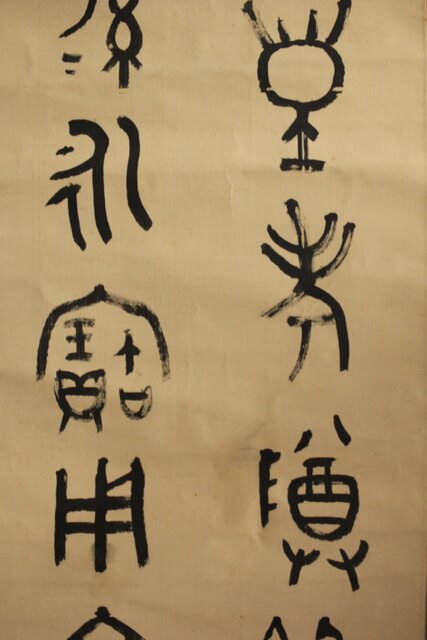 皇考尊
孫永寶用